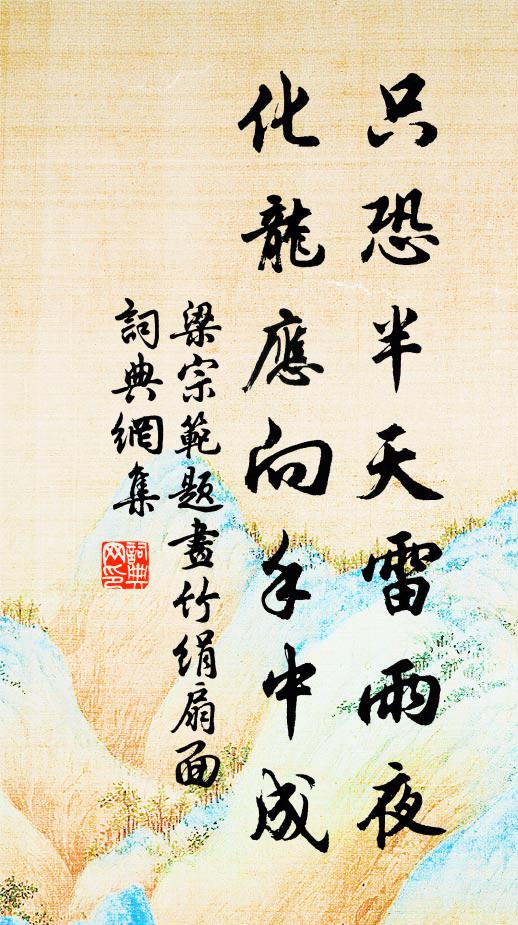 只恐半天雷雨夜
化龍應向手中成
梁宗範題畫竹絹扇面
詞典網集
詞典网印